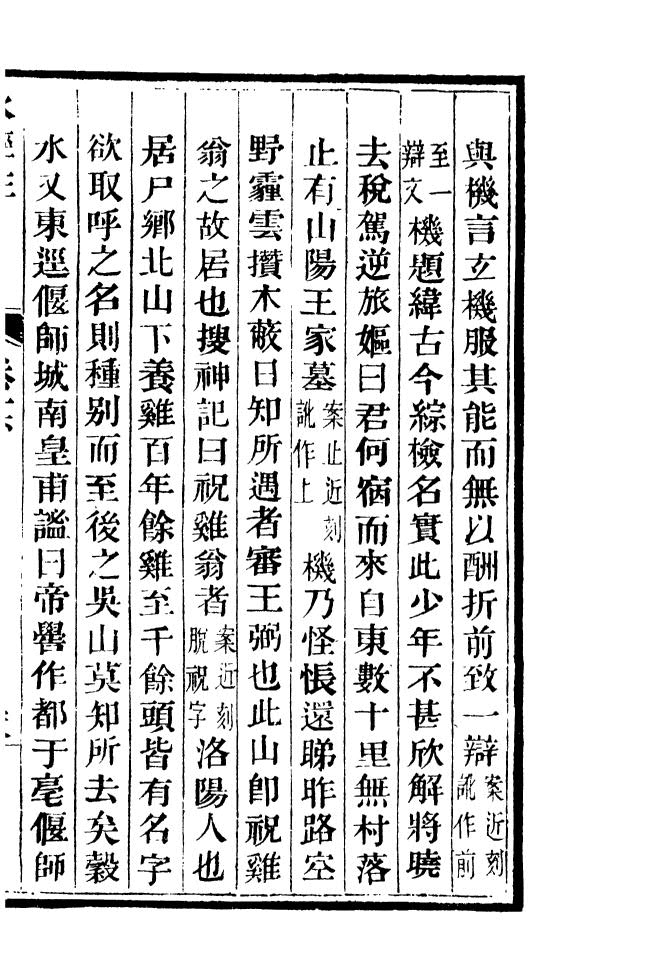 與機言𤣥機服其能而無以酬折前致一辯案近刻訛作前
至一辯文機題緯古今綜檢名實此少年不甚欣解將曉
去稅駕逆旅嫗曰君何宿而來自東數十里無村落
止有山陽王家墓案止近刻訛作上機乃怪悵還睇昨路空
野霾雲攢木蔽日知所遇者審王弼也此山卽祝雞
翁之故居也搜神記曰祝雞翁者案近刻脫祝字洛陽人也
居尸鄉北山下養雞百年餘雞至千餘頭皆有名字
欲取呼之名則種別而至後之吳山莫知所去矣榖
水又東逕偃師城南皇甫謐曰帝嚳作都于亳偃師